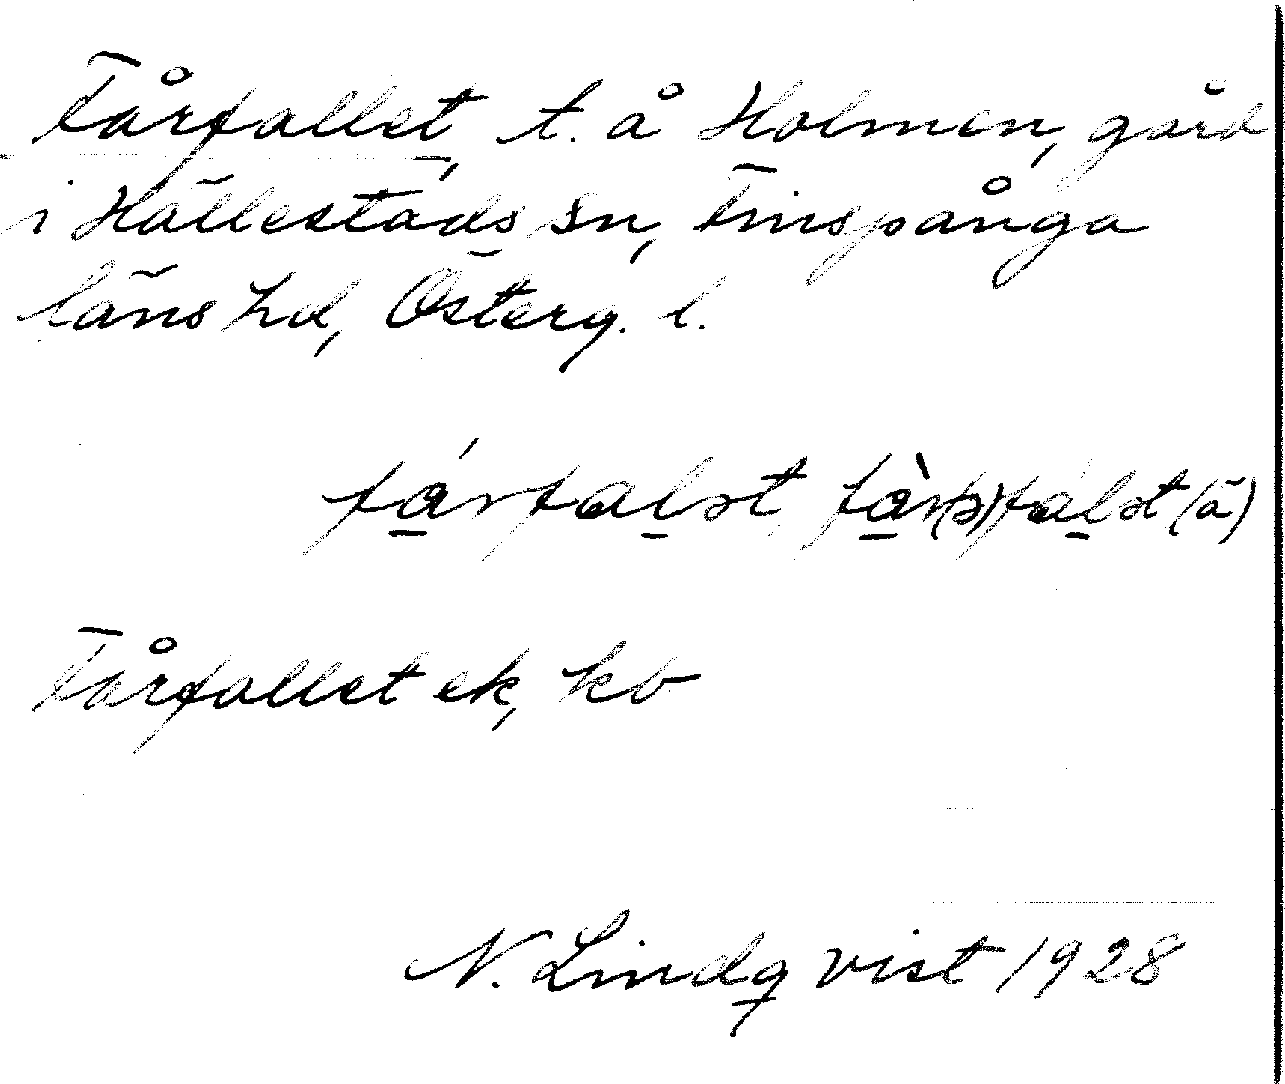 Fårfallet, t. å Holmen, gård
i Hällestads sn, Finspånga
läns hd, Österg. l.
fárfalət, fàr(ə)fàlət (ä)
Fårfallet ek, kb
N. Lindqvist 1928